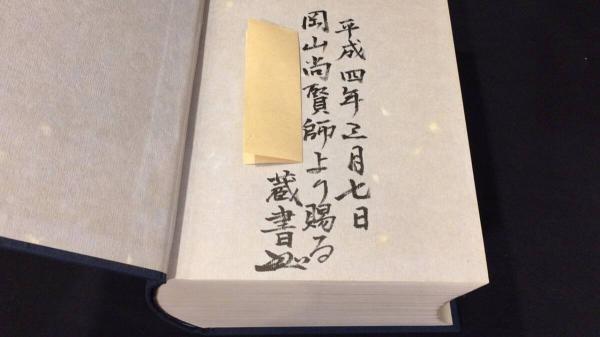 平成四年三月七日
岡山尚賢師より賜る
蔵書